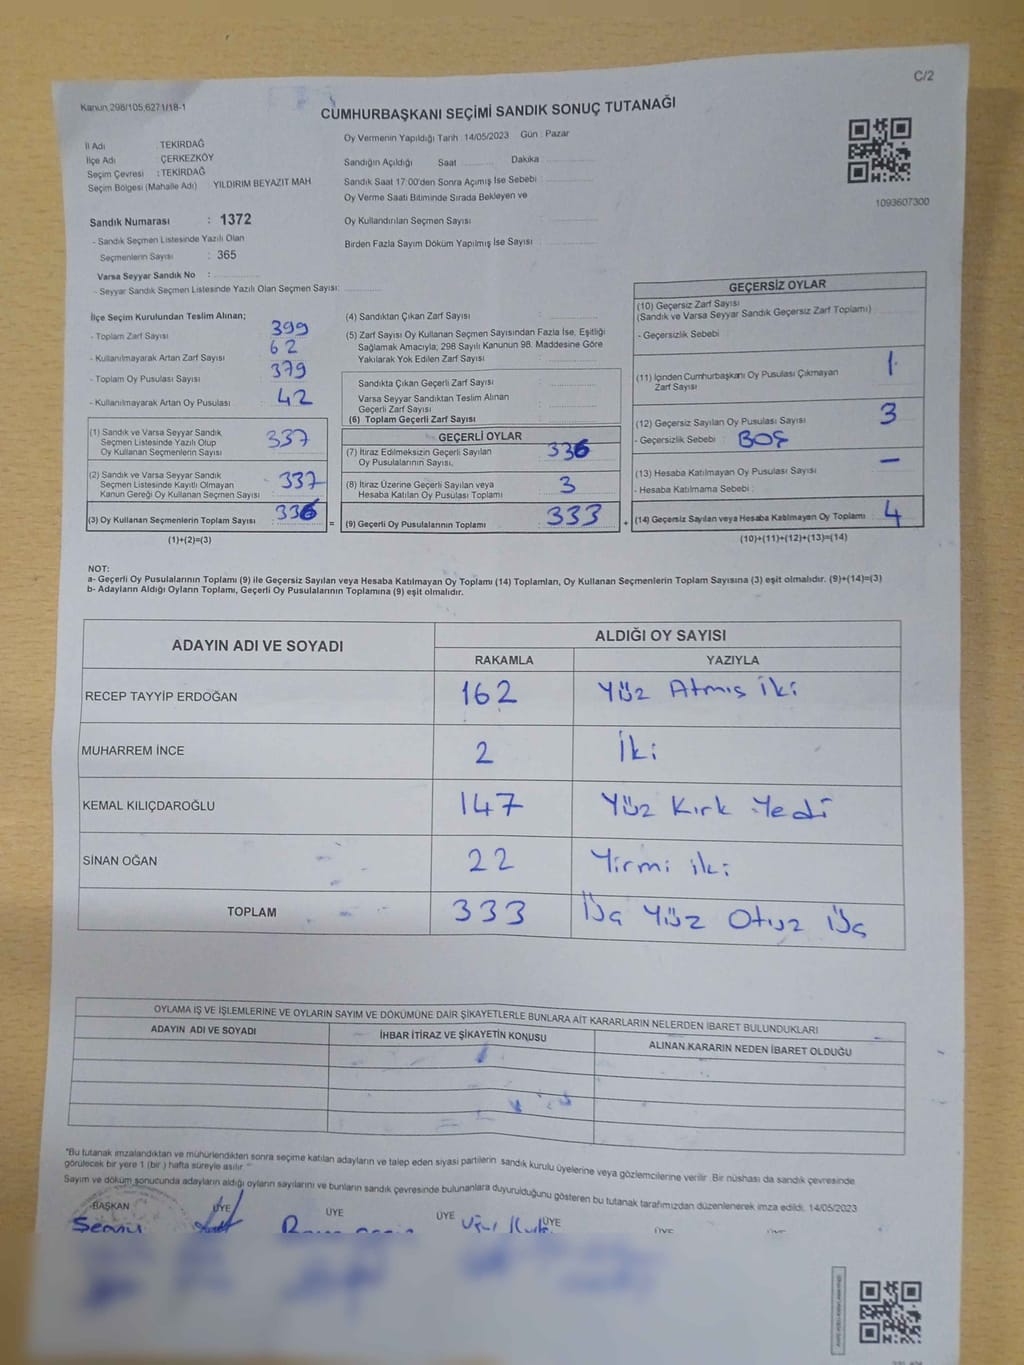 C/2
Kanun 298/105,6271/18-1
CUMHURBAŞKANI SEÇİMİ SANDIK SONUÇ TUTANAĞI
İl Adı : TEKİRDAĞ
İlçe Adı ÇERKEZKÖY
Seçim Çevresi : TEKİRDAĞ
Seçim Bölgesi (Mahalle Adı) YILDIRIM BEYAZIT MAH
Sandık Numarası : 1372
- Sandık Seçmen Listesinde Yazılı Olan
Seçmenlerin Sayısı : 365
Varsa Seyyar Sandık No :
- Seyyar Sandık Seçmen Listesinde Yazılı Olan Seçmen Sayısı:
Oy Vermenin Yapıldığı Tarih : 14/05/2023 Gün : Pazar
Sandığın Açıldığı Saat Dakika
Sandık Saat 17:00'den Sonra Açımış İse Sebebi
Oy Verme Saati Bitiminde Sırada Bekleyen ve
Oy Kullandırılan Seçmen Sayısı
Birden Fazla Sayım Döküm Yapılmış İse Sayısı
1093607300
İlçe Seçim Kurulundan Teslim Alınan;
- Toplam Zarf Sayısı 399
- Kullanılmayarak Artan Zarf Sayısı 62
- Toplam Oy Pusulası Sayısı 379
- Kullanılmayarak Artan Oy Pusulası 42
(1) Sandık ve Varsa Seyyar Sandık
Seçmen Listesinde Yazılı Olup
Oy Kullanan Seçmenlerin Sayısı 337
(2) Sandık ve Varsa Seyyar Sandık
Seçmen Listesinde Kayıtlı Olmayan
Kanun Gereği Oy Kullanan Seçmen Sayısı 337
(3) Oy Kullanan Seçmenlerin Toplam Sayısı 336
(1)+(2)=(3)
=
(4) Sandıktan Çıkan Zarf Sayısı
(5) Zarf Sayısı Oy Kullanan Seçmen Sayısından Fazla İse, Eşitliği
Sağlamak Amacıyla; 298 Sayılı Kanunun 98. Maddesine Göre
Yakılarak Yok Edilen Zarf Sayısı
Sandıkta Çıkan Geçerli Zarf Sayısı
Varsa Seyyar Sandıktan Teslim Alınan
Geçerli Zarf Sayısı
(6) Toplam Geçerli Zarf Sayısı
GEÇERLİ OYLAR
(7) İtiraz Edilmeksizin Geçerli Sayılan
Oy Pusulalarının Sayısı, 336
(8) İtiraz Üzerine Geçerli Sayılan veya
Hesaba Katılan Oy Pusulası Toplamı 3
(9) Geçerli Oy Pusulalarının Toplamı 333
+
GEÇERSİZ OYLAR
(10) Geçersiz Zarf Sayısı
(Sandık ve Varsa Seyyar Sandık Geçersiz Zarf Toplamı)
- Geçersizlik Sebebi
(11) İçinden Cumhurbaşkanı Oy Pusulası Çıkmayan
Zarf Sayısı 1
(12) Geçersiz Sayılan Oy Pusulası Sayısı 3
- Geçersizlik Sebebi : BOŞ
(13) Hesaba Katılmayan Oy Pusulası Sayısı –
- Hesaba Katılmama Sebebi :
(14) Geçersiz Sayılan veya Hesaba Katılmayan Oy Toplamı 4
(10)+(11)+(12)+(13)=(14)
NOT:
a- Geçerli Oy Pusulalarının Toplamı (9) ile Geçersiz Sayılan veya Hesaba Katılmayan Oy Toplamı (14) Toplamları, Oy Kullanan Seçmenlerin Toplam Sayısına (3) eşit olmalıdır. (9)+(14)=(3)
b- Adayların Aldığı Oyların Toplamı, Geçerli Oy Pusulalarının Toplamına (9) eşit olmalıdır.
ADAYIN ADI VE SOYADI
ALDIĞI OY SAYISI
RAKAMLA YAZIYLA
RECEP TAYYİP ERDOĞAN 162 Yüz Atmış İki
MUHARREM İNCE 2 İki
KEMAL KILIÇDAROĞLU 147 Yüz Kırk Yedi
SİNAN OĞAN 22 Yirmi iki
TOPLAM 333 Üç Yüz Otuz Üç
OYLAMA İŞ VE İŞLEMLERİNE VE OYLARIN SAYIM VE DÖKÜMÜNE DAİR ŞİKAYETLERLE BUNLARA AİT KARARLARIN NELERDEN İBARET BULUNDUKLARI
ADAYIN ADI VE SOYADI İHBAR İTİRAZ VE ŞİKAYETİN KONUSU ALINAN KARARIN NEDEN İBARET OLDUĞU
"Bu tutanak imzalandıktan ve mühürlendikten sonra seçime katılan adayların ve talep eden siyasi partilerin sandık kurulu üyelerine veya gözlemcilerine verilir. Bir nüshası da sandık çevresinde
görülecek bir yere 1 (bir ) hafta süreyle asılır. "
Sayım ve döküm sonucunda adayların aldığı oyların sayılarını ve bunların sandık çevresinde bulunanlara duyurulduğunu gösteren bu tutanak tarafımızdan düzenlenerek imza edildi. 14/05/2023
BAŞKAN ÜYE ÜYE ÜYE ÜYE ÜYE ÜYE